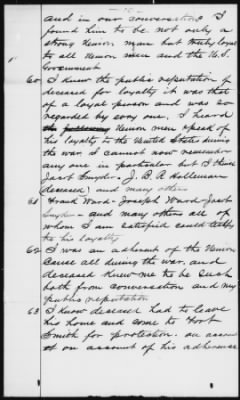 and in our conversations I
found him to be not only a
strong Union man but truly loyal
to all Union men and the U.S.
Government
60 I knew the public reputation of
deceased for loyalty it was that
of a loyal person and was so
regarded by every one. I heard
the following Union men speak of
his loyalty to the United States during
the war I cannot now remember
any one in particular but I think
Jacob Snyder. J. B. A Holleman
(deceased) and many others
61 Frank Ward - Joseph Ward Jacob
Snyder - and many others all of
whom I am satisfied could testify
to his loyalty
62 I was an adherent of the Union
Cause all during the war and
deceased knew me to be such
both from conversation and my
public reputation
63 I know deceased had to leave
his home and come to Fort
Smith for protection. on account
of on account of his adherence